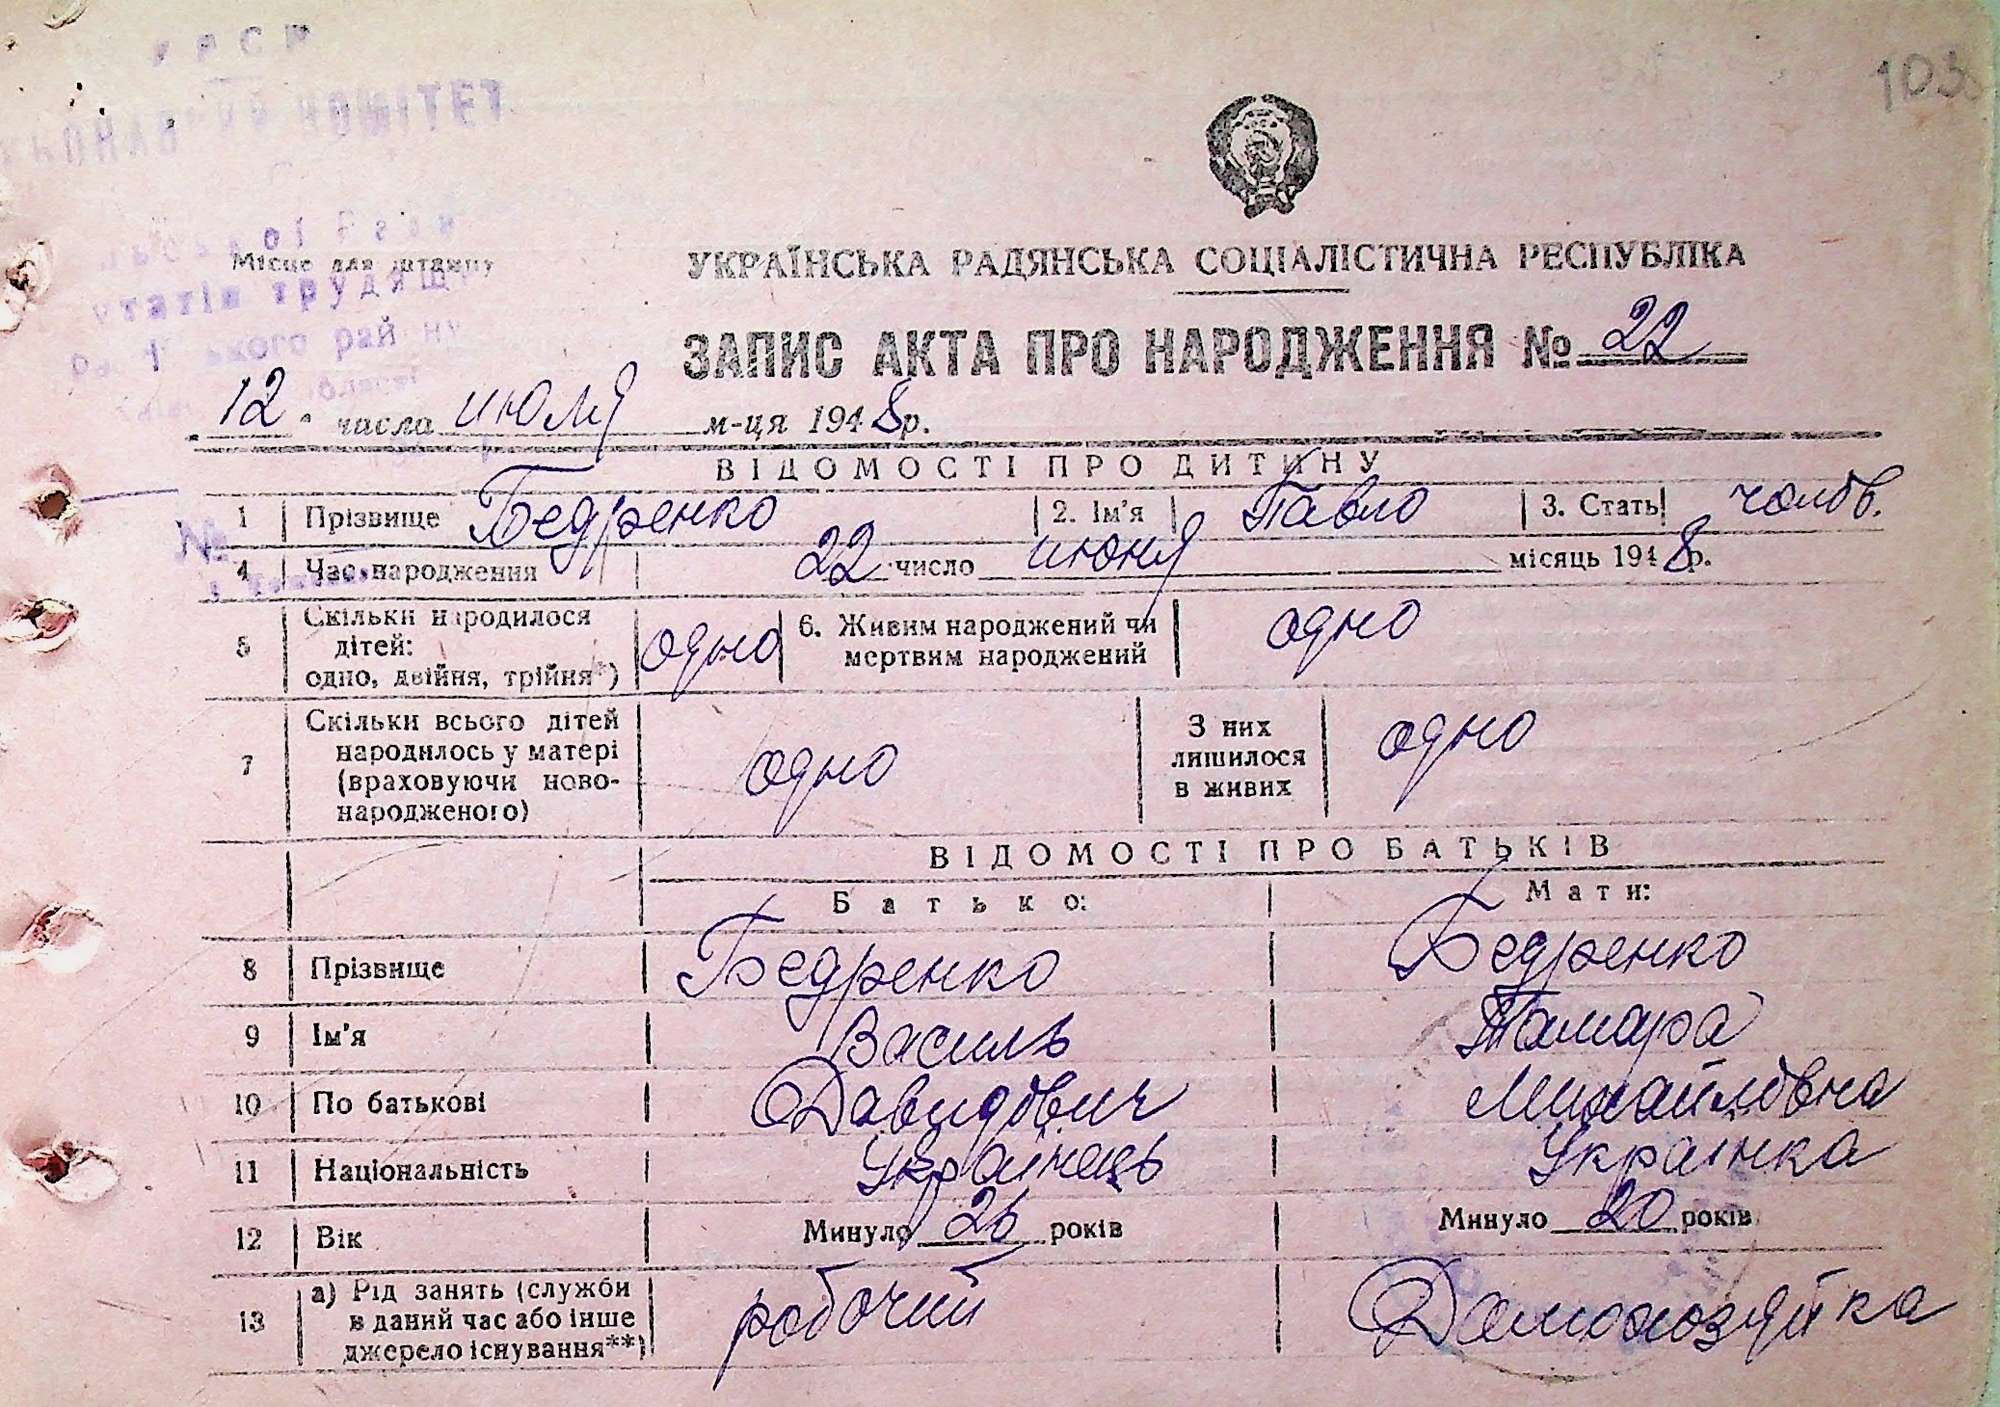 103
УРСР
КОМІТЕТ
Місце для штампу
трудящ
УКРАЇНСЬКА РАДЯНСЬКА СОЦІАЛІСТИЧНА РЕСПУБЛІКА
ЗАПИС АКТА ПРО НАРОДЖЕННЯ № 22
12 числа июля м-ця 1948 р.
ВІДОМОСТІ ПРО ДИТИНУ
1 Прізвище Бедренко 2. Ім'я Павло 3. Стать чолов.
4 Час народження 22 число июня місяць 1948 р.
5 Скільки народилося дітей: одно, двійня, трійня*) одно 6. Живим народжений чи мертвим народжений одно
7 Скільки всього дітей народилось у матері (враховуючи новонародженого) одно З них лишилося в живих одно
ВІДОМОСТІ ПРО БАТЬКІВ
Батько: Мати:
8 Прізвище Бедренко Бедренко
9 Ім'я Василь Тамара
10 По батькові Давидович Михайловна
11 Національність Українець Українка
12 Вік Минуло 26 років Минуло 20 років
13 а) Рід занять (служби в даний час або інше джерело існування**) робочий Домохозяйка